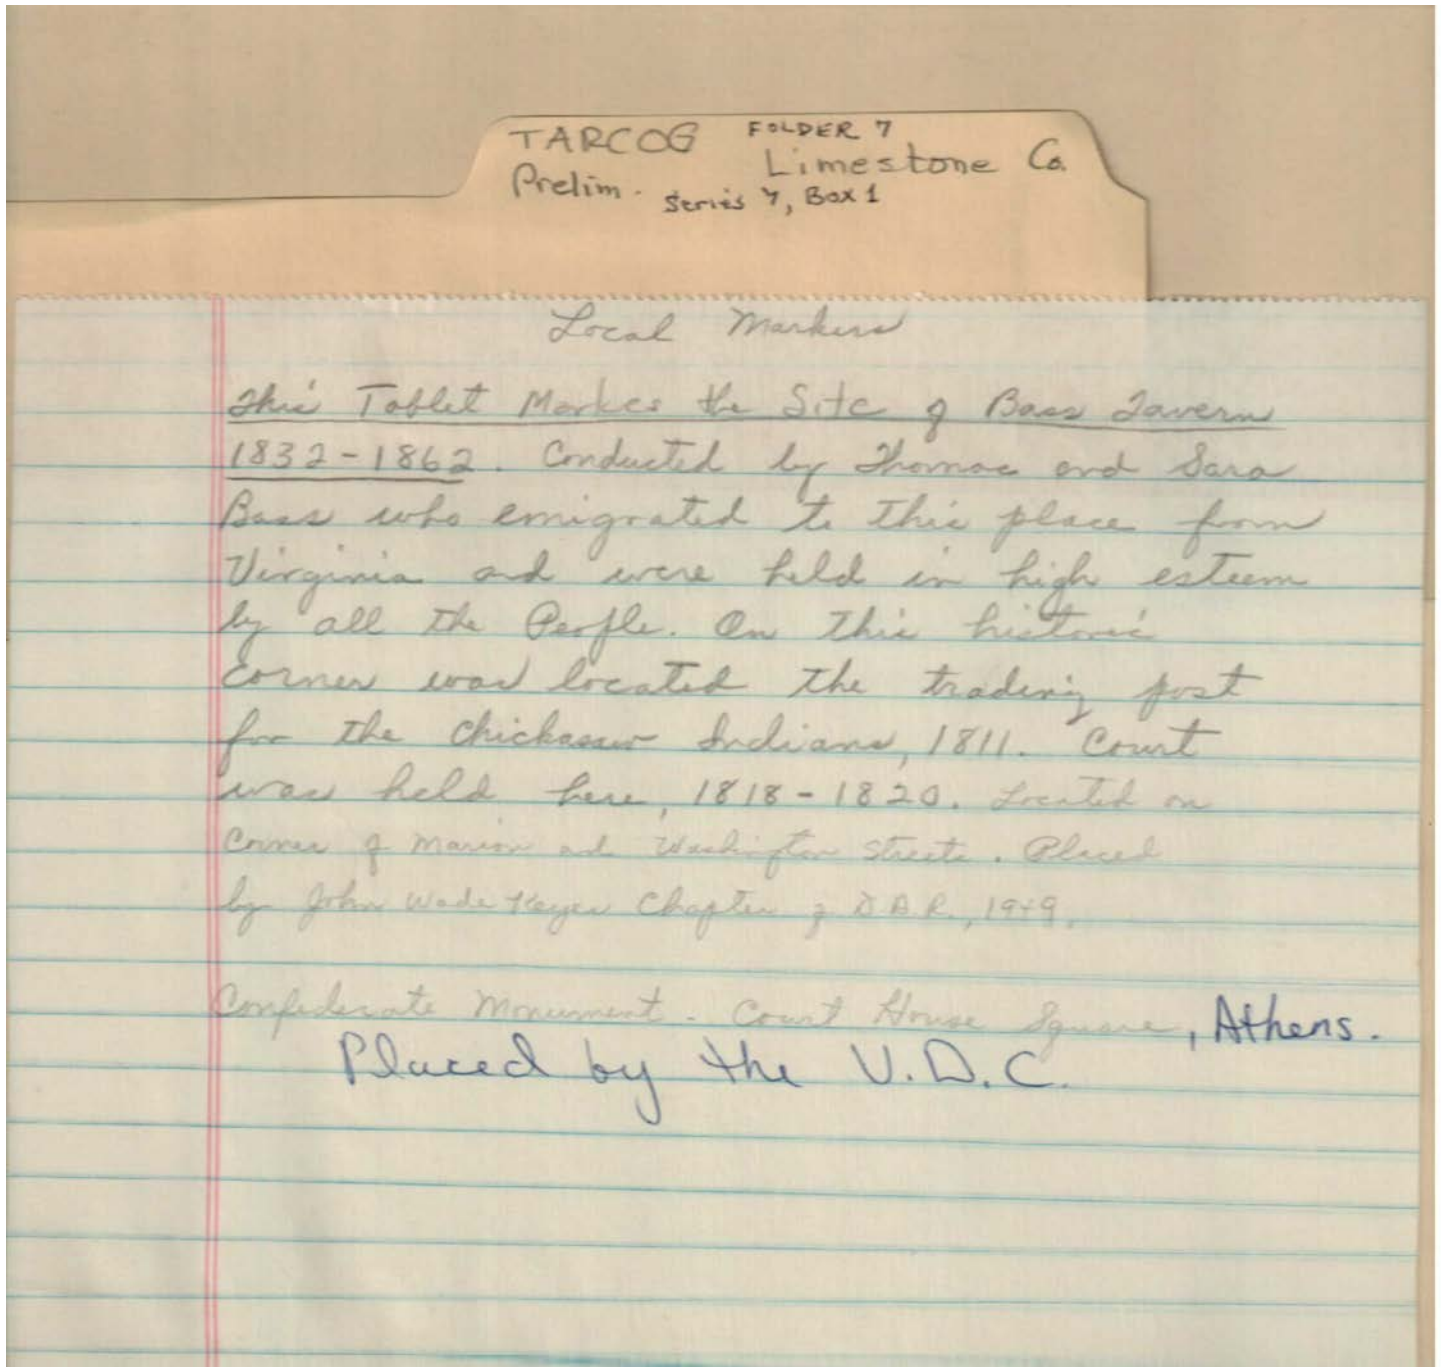 TARCOG FOLDER 7
Limestone Co.
Prelim. Series 7, Box 1
Local Markers
This Tablet Markes the Site of Bass Tavern
1832-1862. Conducted by Thomas and Sara
Bass who emigrated to this place from
Virginia and were held in high esteem
by all the People. On this historic
corner was located the trading post
for the Chickasaw Indians, 1811. Court
was held here, 1818-1820. Located on
Corner of Marion and Washington Streets. Placed
by John Wade Keyes Chapter of D.A.R., 1949.
Confederate Monument. Court House Square, Athens.
Placed by the U.D.C.